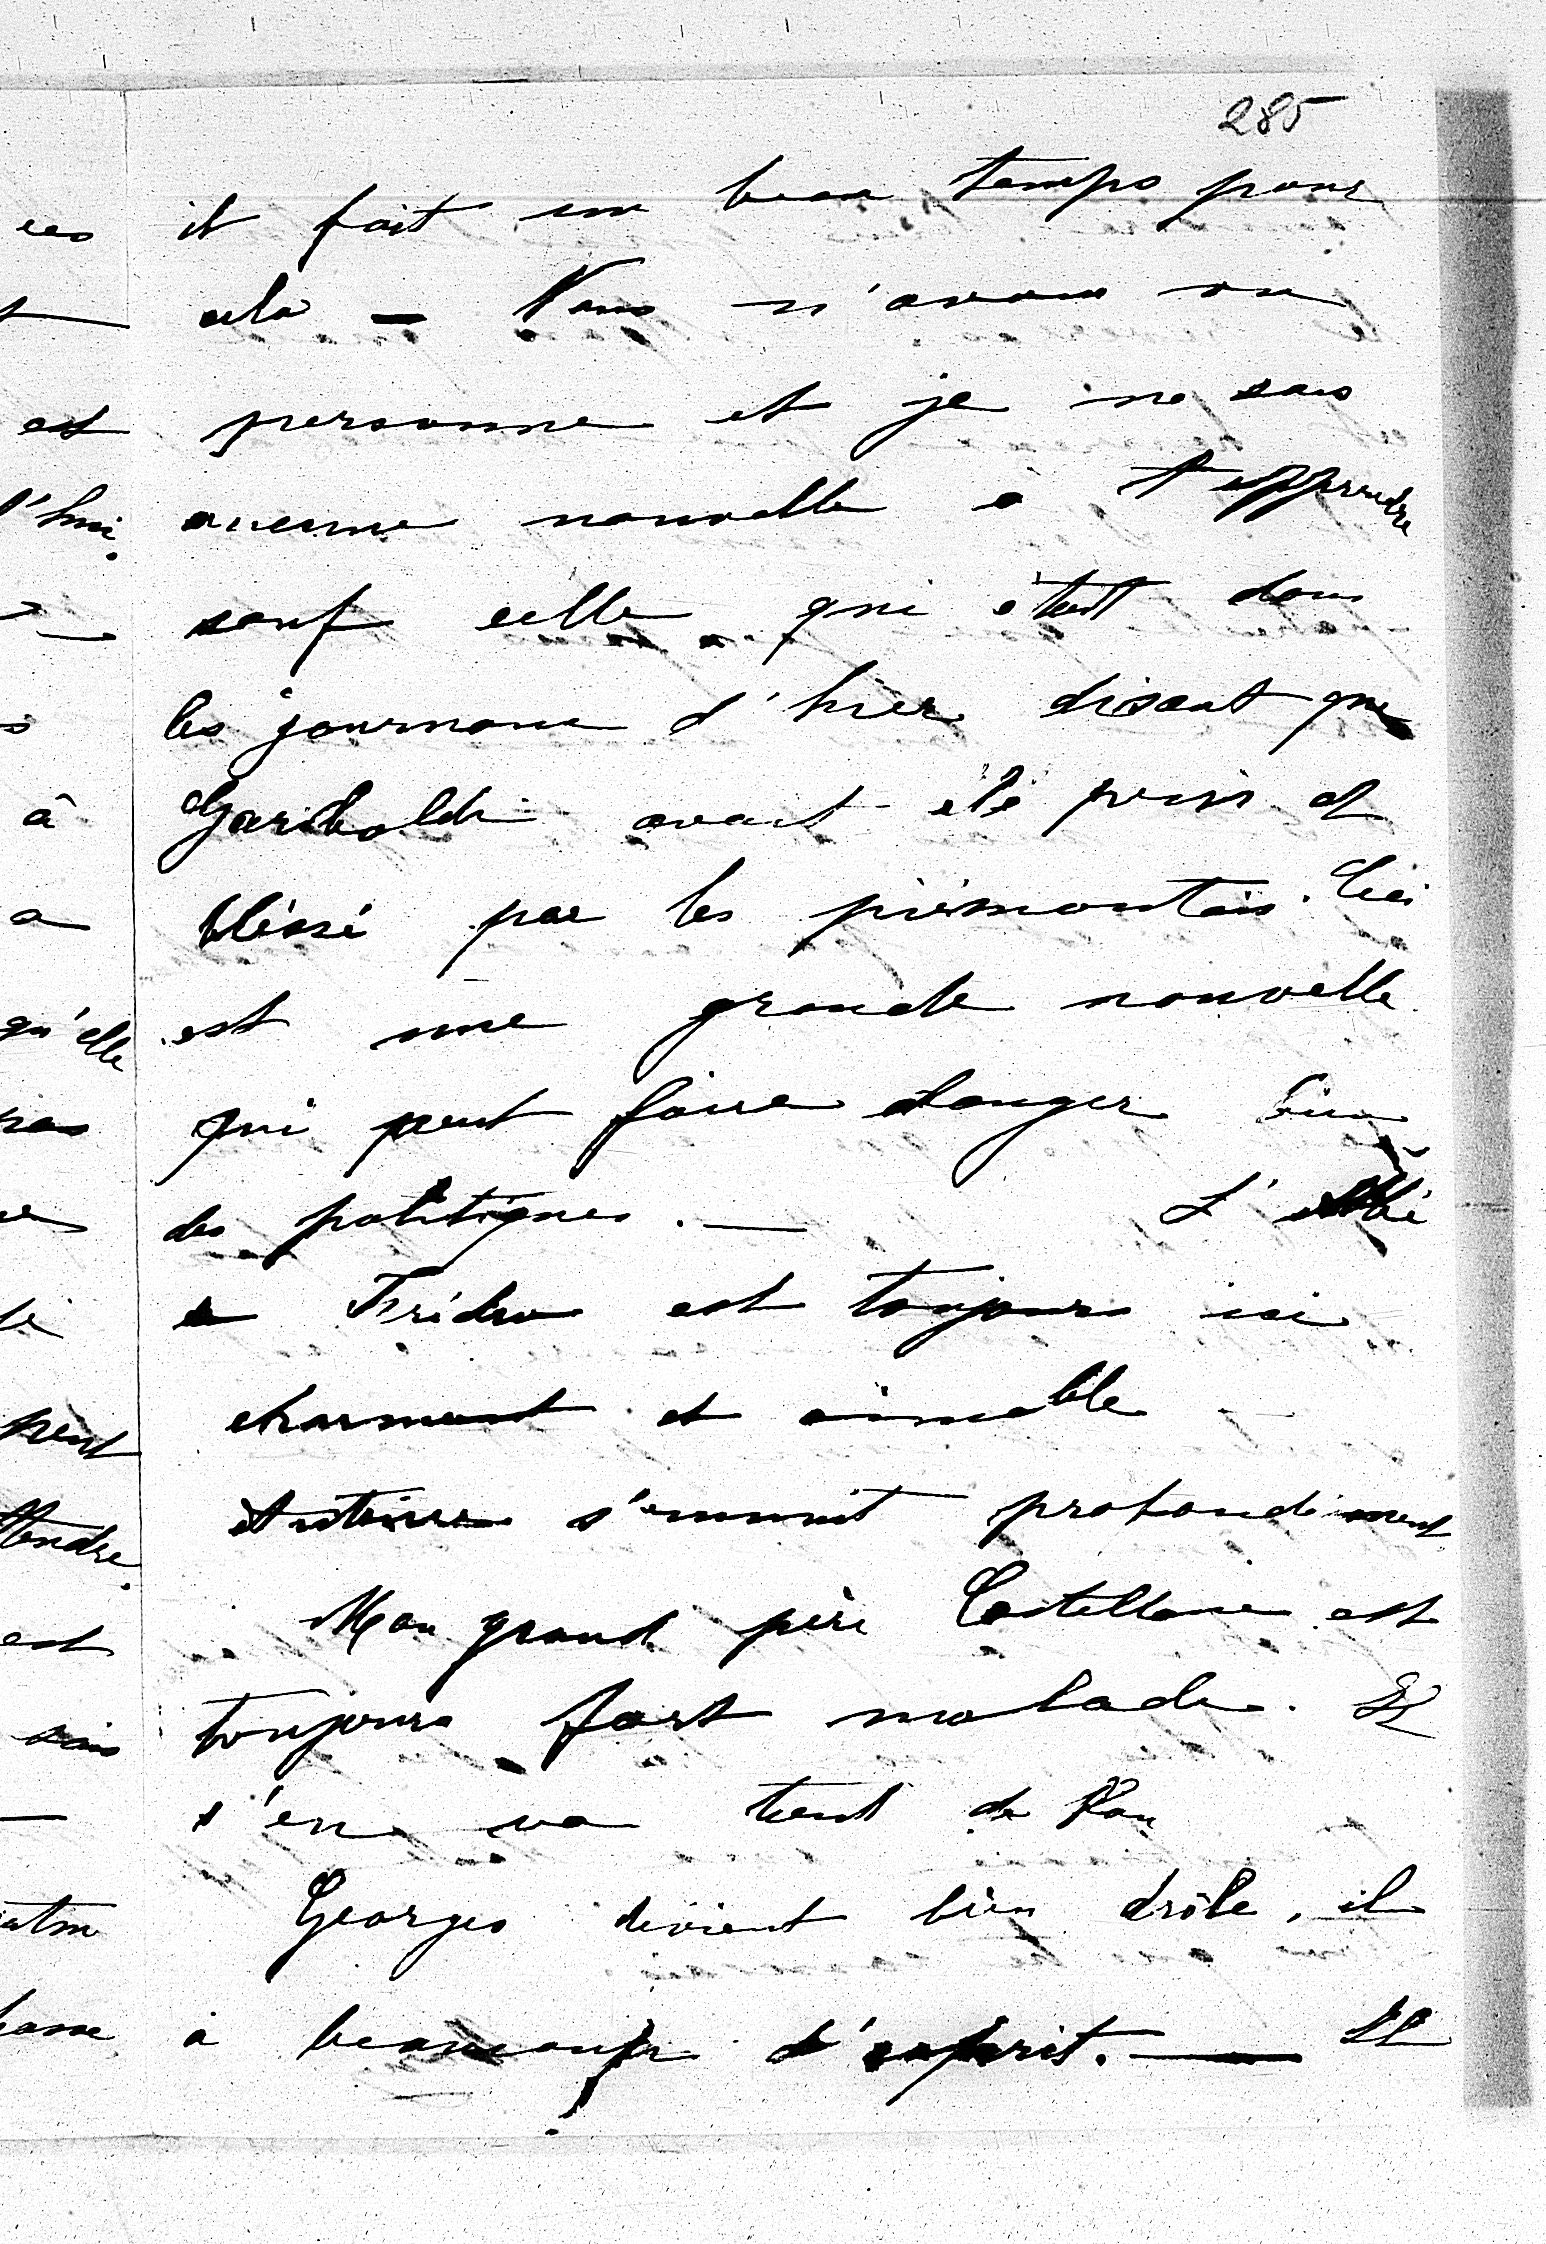 285
il fait un beau temps pour
cela — Nous n'avons vu
personne et je ne sais
aucune nouvelle à t'apprendre
sauf celle qui était dans
les journaux d'hier disant que
Garibaldi avait été pris et
blessé par les piémontais. Ceci
est une grande nouvelle
qui peut faire changer bien
des politiques. — L'abbé
est toujours ici
charmant et aimable
s'ennuit profondément
Mon grand père Castellane est
toujours fort malade. Il
s'en va tout de
Georges devient bien drôle, il
a beaucoup d'esprit. — Il